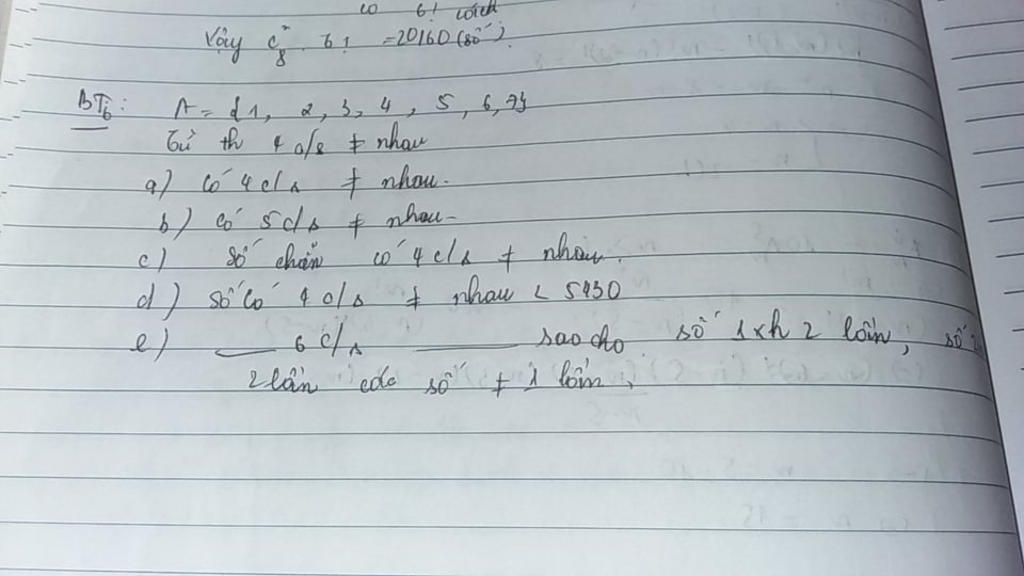 có 6! cách
Vậy C²₈ . 6! = 20160 (số).
BT6: A = {1, 2, 3, 4, 5, 6, 7}
Từ th 4 c/s ≠ nhau
a) Có 4 c/s ≠ nhau.
b) Có 5 c/s ≠ nhau.
c) Số chẵn có 4 c/s ≠ nhau.
d) Số có 4 c/s ≠ nhau < 5430
e) — 6 c/s — sao cho số 1 xh 2 lần, số
2 lần các số ≠ 1 lần.